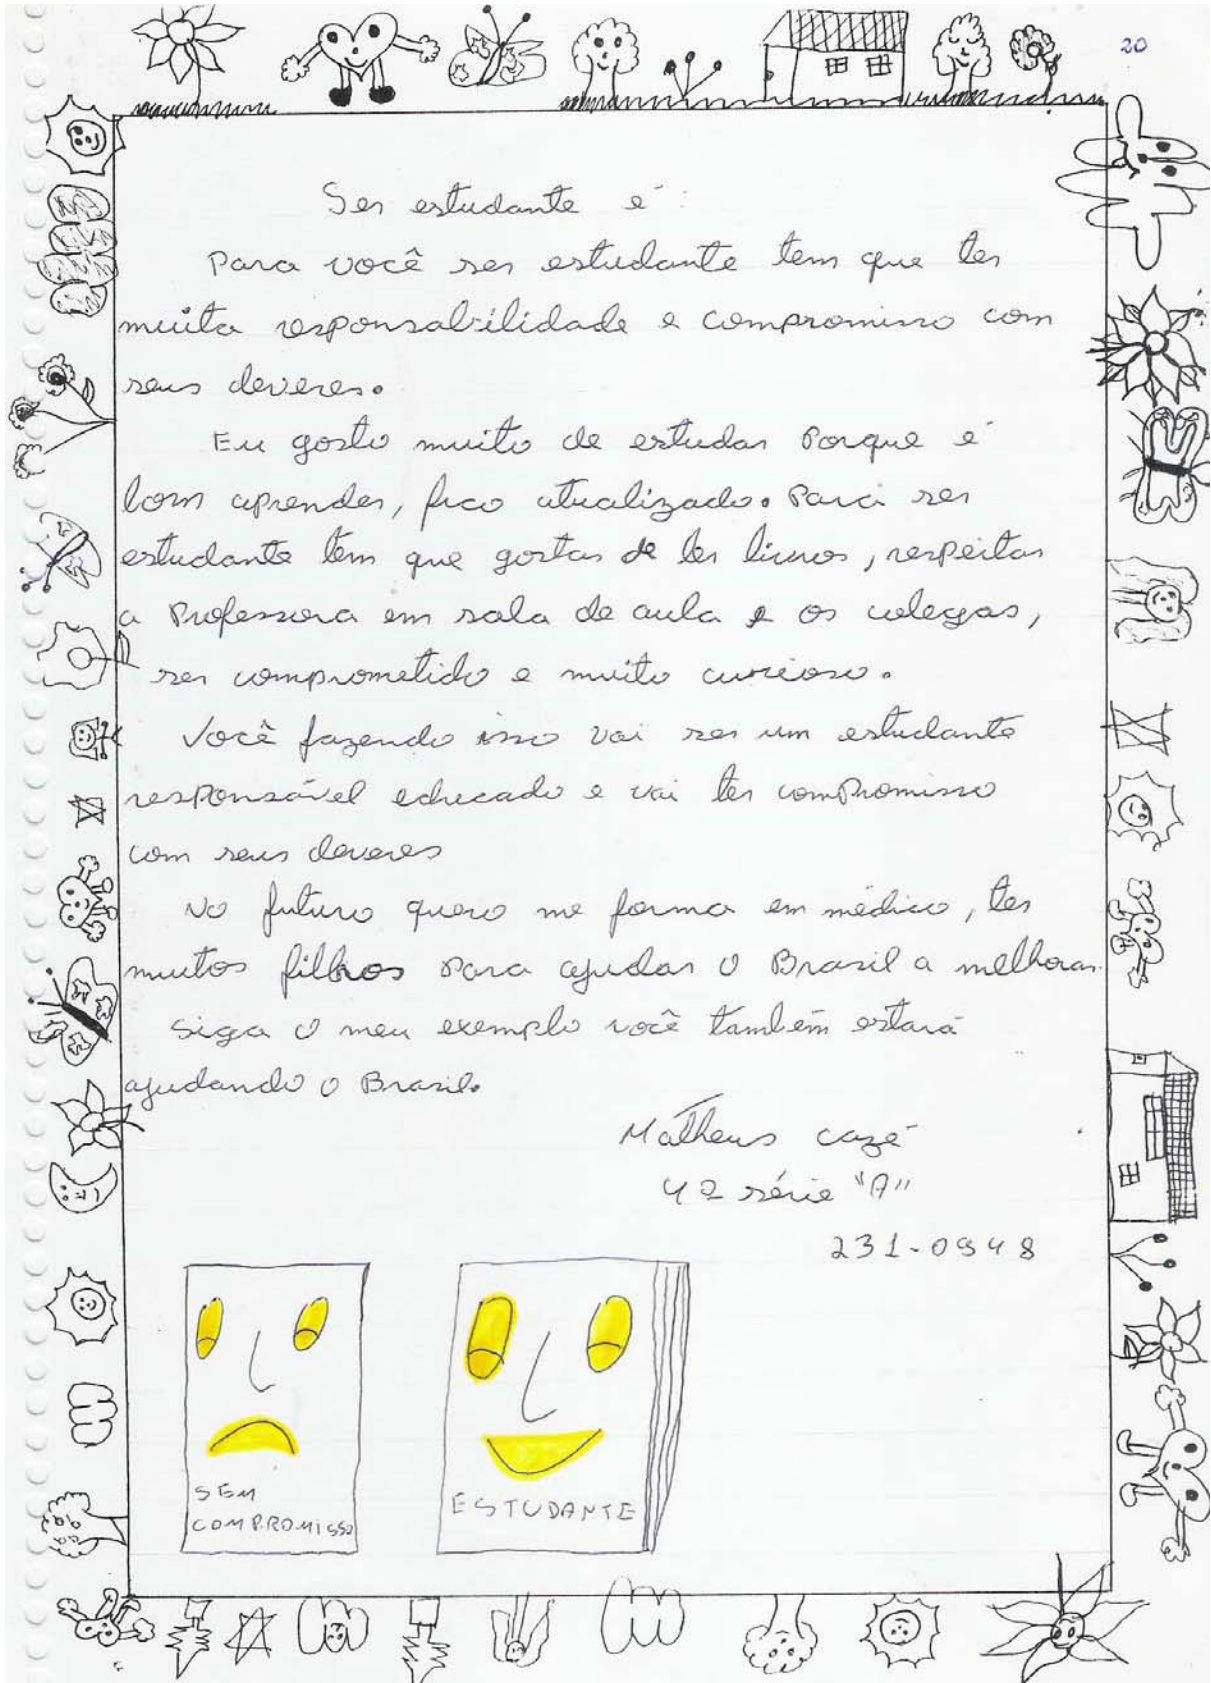 20
Ser estudante é:
Para você ser estudante tem que ter
muita responsabilidade e compromisso com
seus deveres.
Eu gosto muito de estudar Porque é
bom aprender, fico atualizado. Para ser
estudante tem que gostar de ler livros, respeitar
a Professora em sala de aula e os colegas,
ser comprometido e muito curioso.
Você fazendo isso vai ser um estudante
responsável educado e vai ter compromisso
com seus deveres
No futuro quero me forma em médico, ter
muitos filhos Para ajudar o Brasil a melhorar.
Siga o meu exemplo você também estará
ajudando o Brasil.
Matheus cazé
4ª série "A"
231-0948
SEM
COMPROMISSO
ESTUDANTE